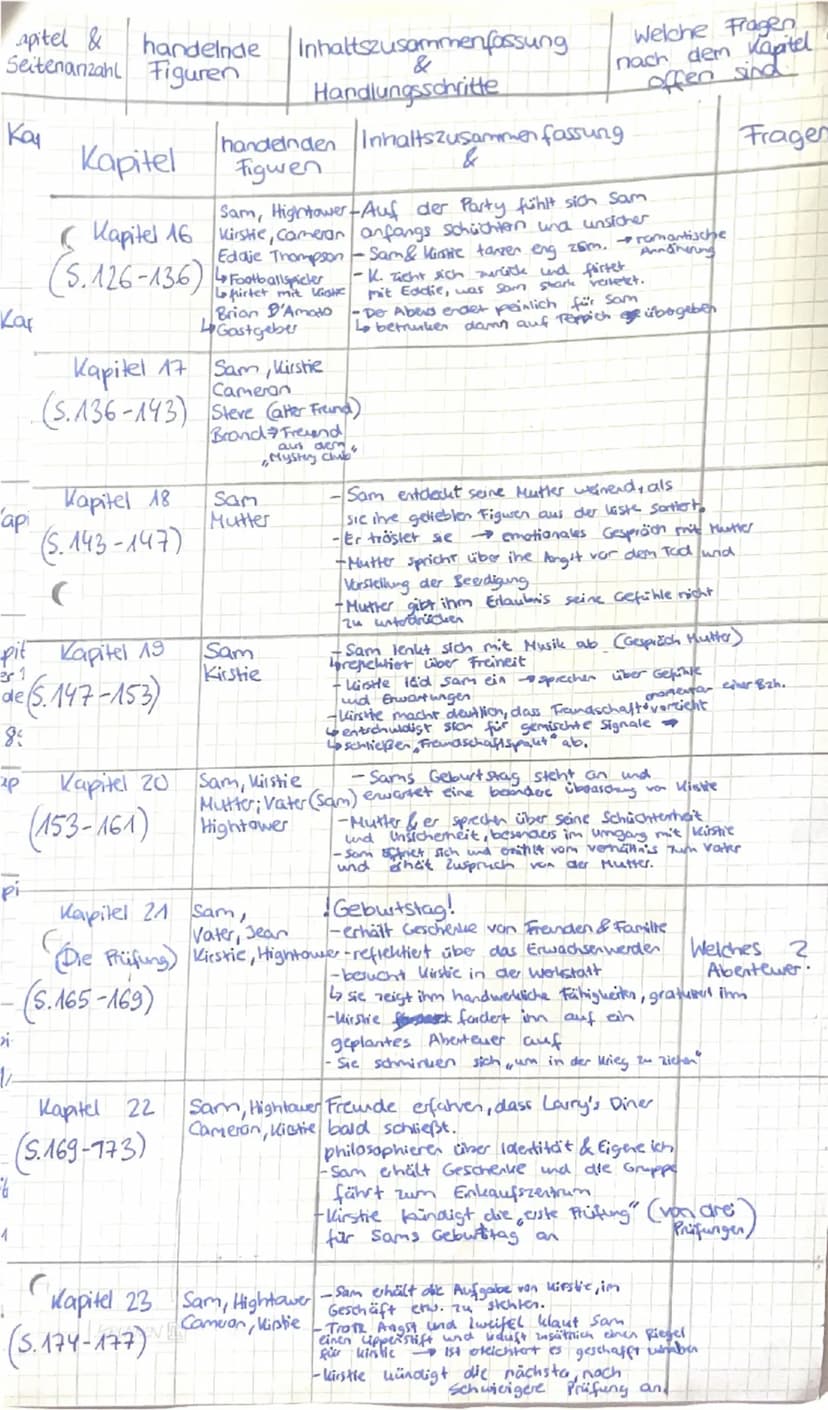 apitel &
Seitenanzahl
handelnde
Figuren
Inhaltszusammenfassung
&
Handlungsschritte
Welche Fragen
nach dem Kapitel
offen sind
Kap
Kapitel
handelnden
Figuren
Inhaltszusammenfassung
&
Fragen
Kapitel 16
(S.126-136)
Sam, Hightower
Kirstie, Cameron
Eddie Thompson
↳ Footballspieler
↳ flirtet mit Kirstie
Brian D'Amato
↳ Gastgeber
- Auf der Party fühlt sich Sam
anfangs schüchtern und unsicher
- Sam & Kirstie tanzen eng zsm. → romantische
Annäherung
- K. zieht sich zurück und flirtet
mit Eddie, was Sam stark verletzt.
- Der Abend endet peinlich für Sam
↳ betrunken dann auf Teppich übergeben
Kap
Kapitel 17
(S.136-143)
Sam, Kirstie
Cameron
Steve (alter Freund)
Brand → Freund
aus dem
„Mystery Club"
api
Kapitel 18
(S.143-147)
Sam
Mutter
- Sam entdeckt seine Mutter weinend, als
sie ihre geliebten Figuren aus der Kiste sortiert.
- Er tröstet sie → emotionales Gespräch mit Mutter
- Mutter spricht über ihre Angst vor dem Tod und
Vorstellung der Beerdigung
- Mutter gibt ihm Erlaubnis seine Gefühle nicht
zu unterdrücken
pit
de
8:
Kapitel 19
(S.147-153)
Sam
Kirstie
- Sam lenkt sich mit Musik ab (Gespräch Mutter)
↳ reflektiert über Freiheit
- Kirstie läd Sam ein → sprechen über Gefühle
und Erwartungen
momentan einer Bzh.
- Kirstie macht deutlich, dass Freundschaft verzicht
↳ entschuldigt sich für gemischte Signale →
↳ schließen „Freundschaftspakt" ab.
Kapitel 20
(153-161)
Sam, Kirstie
Mutter; Vater (Sam)
Hightower
- Sams Geburtstag steht an und
erwartet eine besondere Überraschung von Kirstie
- Mutter & er sprechen über seine Schüchternheit
und Unsicherheit, besonders im Umgang mit Kirstie
- Sam öffnet sich und erzählt vom Verhältnis zum Vater
und erhält Zuspruch von der Mutter.
pi
Kapitel 21
(Die Prüfung)
(S.165-169)
Sam,
Vater, Jean
Kirstie, Hightower
! Geburtstag!
- erhält Geschenke von Freunden & Familie
- reflektiert über das Erwachsenwerden
- besucht Kirstie in der Werkstatt
↳ sie zeigt ihm handwerkliche Fähigkeiten, gratuliert ihm
- Kirstie fordert ihn auf ein
geplantes Abenteuer auf
- Sie schminken sich „um in der Krieg zu ziehen"
Welches ?
Abenteuer.
Kapitel 22
(S.169-173)
Sam, Hightower
Cameron, Kirstie
Freunde erfahren, dass Larry's Diner
bald schließt.
philosophieren über Identität & Eigene ich
- Sam erhält Geschenke und die Gruppe
fährt zum Einkaufszentrum
- Kirstie kündigt die „erste Prüfung" (von drei
Prüfungen)
für Sams Geburtstag an
Kapitel 23
(S.174-177)
Sam, Hightower
Cameron, Kirstie
- Sam erhält die Aufgabe von Kirstie, im
Geschäft etw. zu stehlen.
- Trotz Angst und Zweifel klaut Sam
einen Lippenstift und kauft zusätzlich einen Riegel
für Kirstie → ist erleichtert es geschafft
- Kirstie kündigt die nächste, noch
schwierigere Prüfung an.